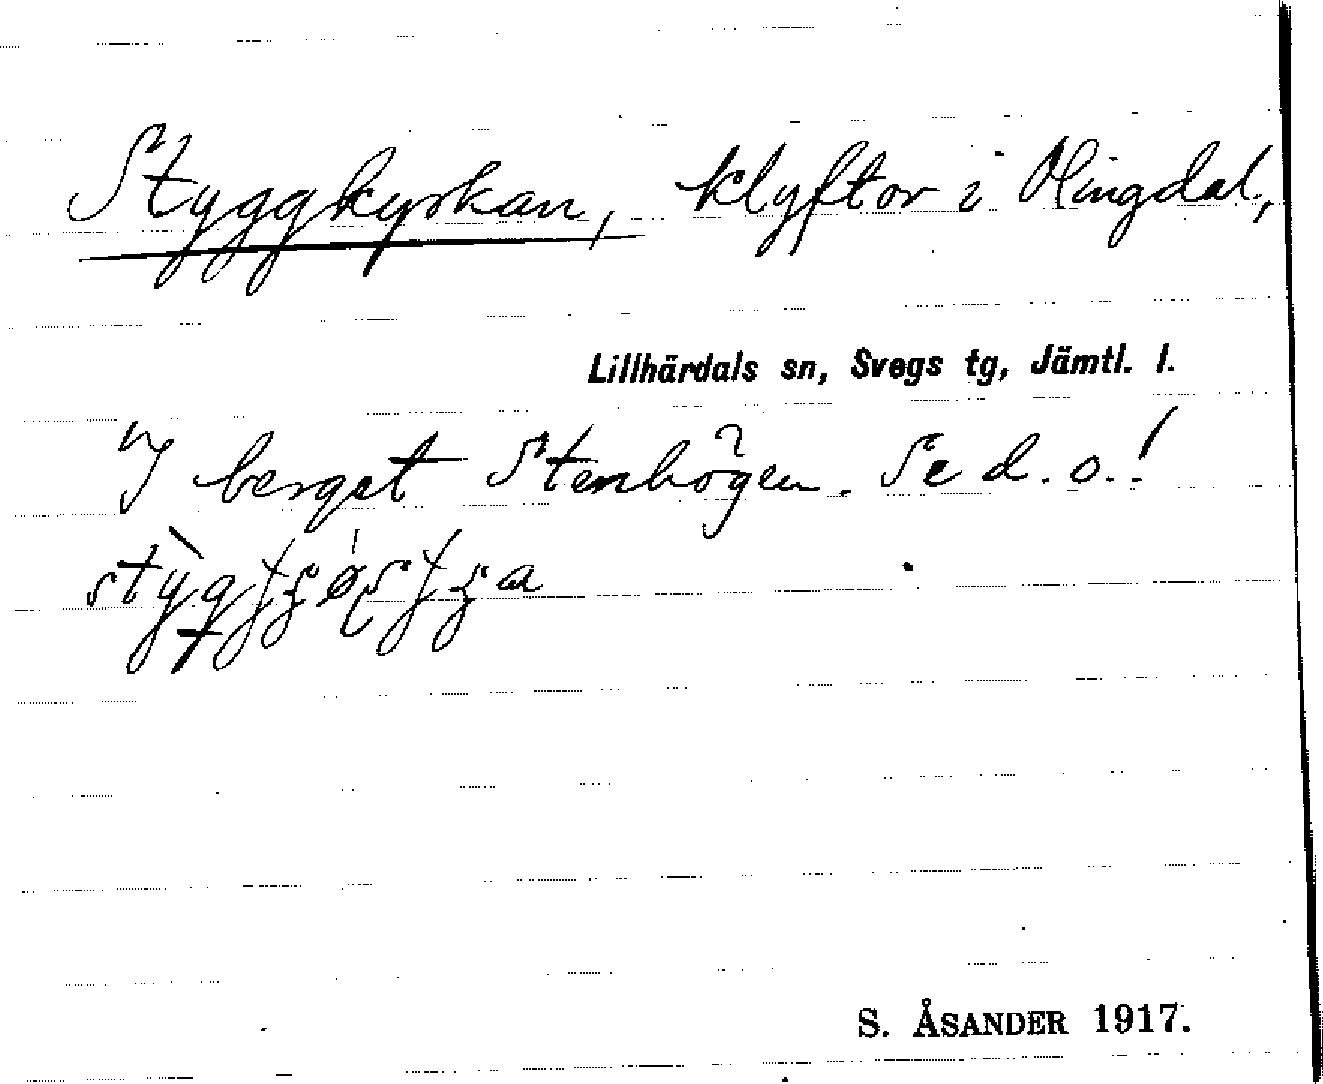 Styggkyrkan, klyftor i Olingdal,
Lillhärdals sn, Svegs tg, Jämtl. l.
I berget Stenhögen. Se d.o.!
S. ÅSANDER 1917.